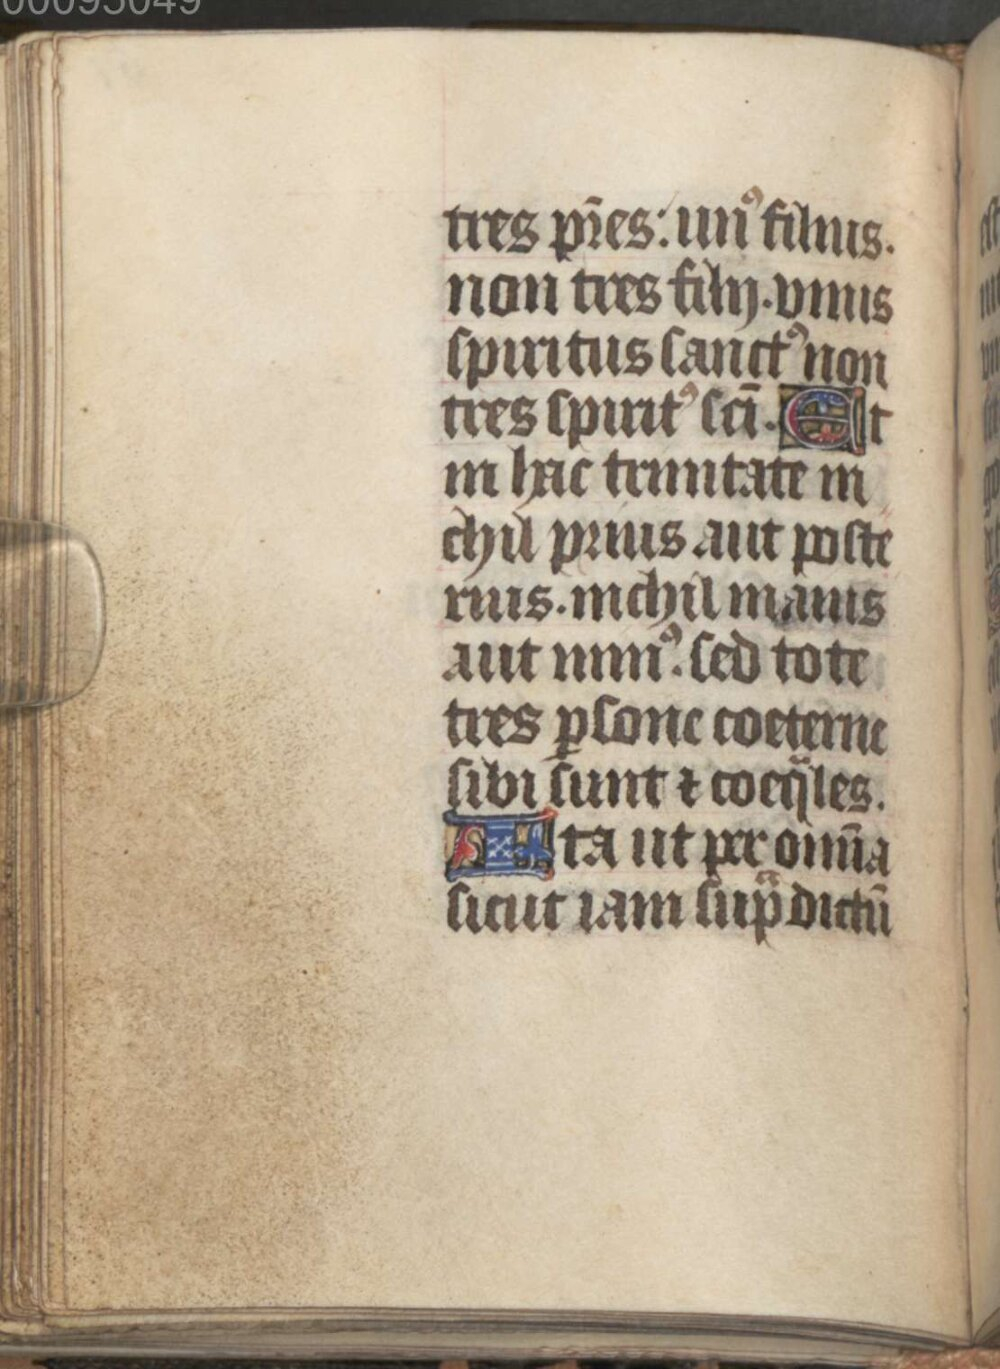 00095049
tres pr̄es: unꝰ filius.
non tres filij. vnius
spiritus sanctꝰ non
tres spiritꝰ sc̄i. Et
in hac trinitate ni
chil prius aut poste
rius. nichil maius
aut minꝰ. sed tote
tres ꝑsone coeterne
sibi sunt ⁊ coeqͣles.
Ita ut per omīa
sicut iam sup̄ͣdictū